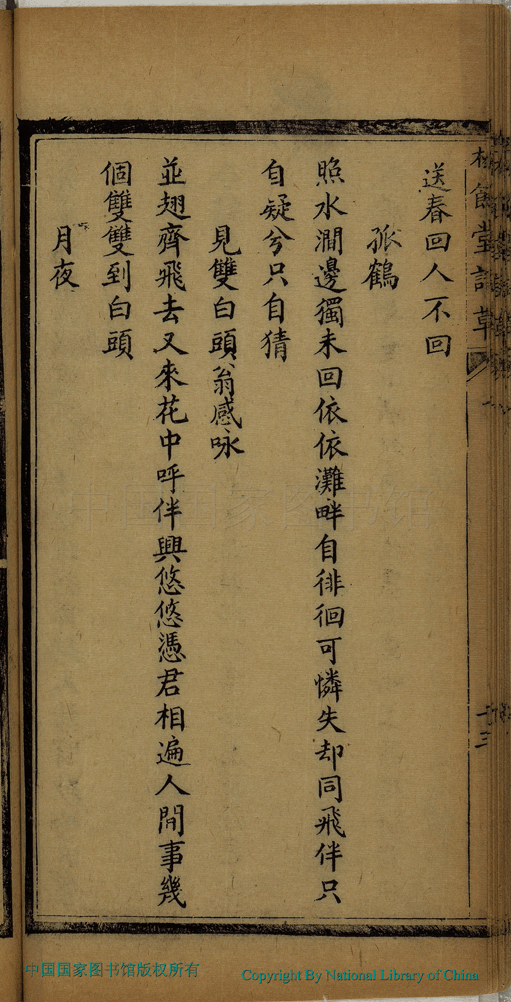 送春回人不回
孤鶴
照水澗邊獨未回依依灘畔自徘徊可憐失却同飛伴只
自疑兮只自猜
見雙白頭翁感咏
並翅齊飛去又來花中呼伴興悠悠憑君相遍人間事幾
個雙雙到白頭
月夜
館堂詩草
十三
中国国家图书馆
中国国家图书馆版权所有
Copyright By National Library of China